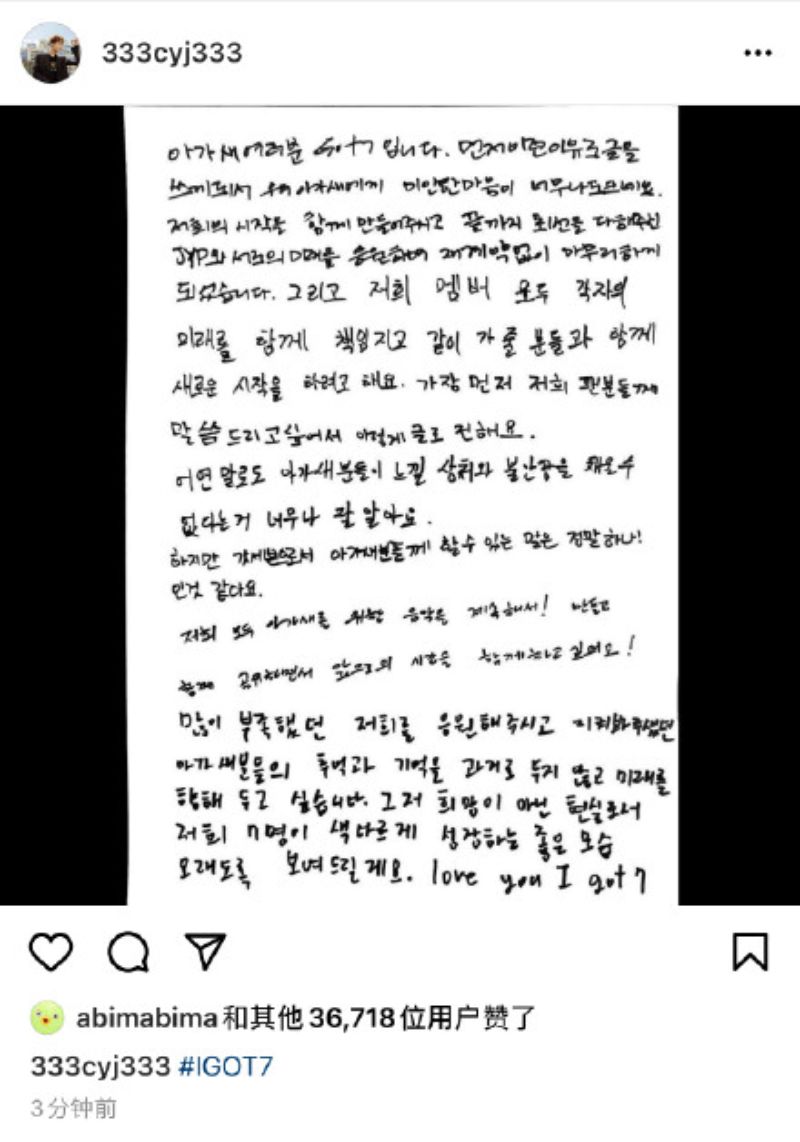 333cyj333
아가새여러분 GOt7 입니다. 먼저 이런 이유로 글을
쓰게되서 우리 아가새에게 미안한마음이 너무나도크네요.
저희의 시작을 함께 만들어주시고 끝까지 최선을 다해주신
JYP와 서로의 미래를 응원하며 재계약없이 마무리하게
되었습니다. 그리고 저희 멤버 모두 각자의
미래를 함께 책임지고 같이 가 줄 분들과 함께
새로운 시작을 하려고 해요. 가장 먼저 저희 팬분들께
말씀 드리고싶어서 이렇게 글로 전해요.
어떤 말로도 아가새분들이 느낄 상처와 불안감을 채울수
없다는거 너무나 잘 알아요.
하지만 갓세븐으로서 아가새분들께 할수 있는 말은 정말하나!
인것 같아요.
저희 모두 아가새를 위한 음악을 계속해서! 만들고
함께 공유하면서 앞으로의 시간을 함께하고 싶어요!
많이 부족했던 저희를 응원해주시고 지켜봐주셨던
아가새분들의 추억과 기억을 과거로 두지 않고 미래를
향해 두고 싶습니다. 그저 희망이 아닌 현실로서
저희 7명이 색다르게 성장하는 좋은 모습
오래도록 보여드릴게요. love you I got7
abimabima和其他 36,718 位用户赞了
333cyj333 #IGOT7
3分钟前